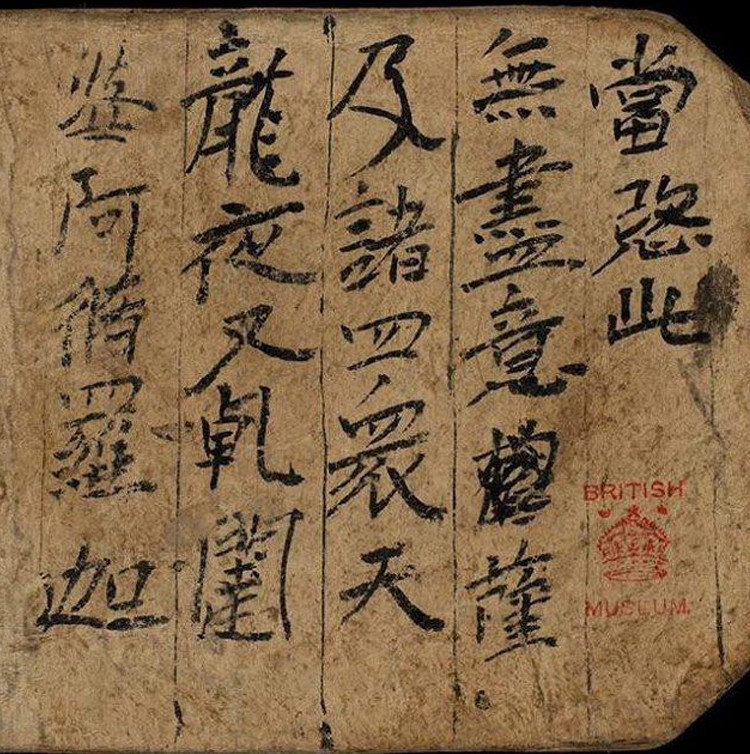 當愍此
無盡意薩
及諸四衆天
龍夜叉乹闥
阿脩羅迦
BRITISH
MUSEUM.